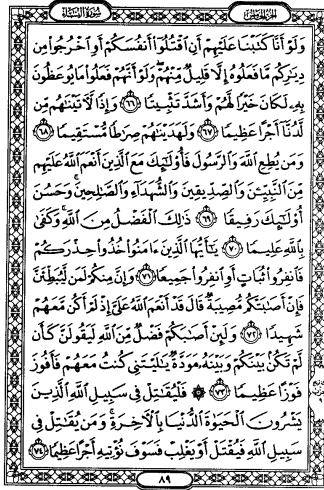 الجزء الخامس
سورة النساء
وَلَوْ أَنَّا كَتَبْنَا عَلَيْهِمْ أَنِ اقْتُلُوا أَنفُسَكُمْ أَوِ اخْرُجُوا مِن
دِيَارِكُم مَّا فَعَلُوهُ إِلَّا قَلِيلٌ مِّنْهُمْ وَلَوْ أَنَّهُمْ فَعَلُوا مَا يُوعَظُونَ
بِهِ لَكَانَ خَيْرًا لَّهُمْ وَأَشَدَّ تَثْبِيتًا ٦٦ وَإِذًا لَّآتَيْنَاهُم مِّن
لَّدُنَّا أَجْرًا عَظِيمًا ٦٧ وَلَهَدَيْنَاهُمْ صِرَاطًا مُّسْتَقِيمًا ٦٨
وَمَن يُطِعِ اللَّهَ وَالرَّسُولَ فَأُولَٰئِكَ مَعَ الَّذِينَ أَنْعَمَ اللَّهُ عَلَيْهِم
مِّنَ النَّبِيِّينَ وَالصِّدِّيقِينَ وَالشُّهَدَاءِ وَالصَّالِحِينَ وَحَسُنَ
أُولَٰئِكَ رَفِيقًا ٦٩ ذَٰلِكَ الْفَضْلُ مِنَ اللَّهِ وَكَفَىٰ
بِاللَّهِ عَلِيمًا ٧٠ يَا أَيُّهَا الَّذِينَ آمَنُوا خُذُوا حِذْرَكُمْ
فَانفِرُوا ثُبَاتٍ أَوِ انفِرُوا جَمِيعًا ٧١ وَإِنَّ مِنكُمْ لَمَن لَّيُبَطِّئَنَّ
فَإِنْ أَصَابَتْكُم مُّصِيبَةٌ قَالَ قَدْ أَنْعَمَ اللَّهُ عَلَيَّ إِذْ لَمْ أَكُن مَّعَهُمْ
شَهِيدًا ٧٢ وَلَئِنْ أَصَابَكُمْ فَضْلٌ مِّنَ اللَّهِ لَيَقُولَنَّ كَأَن
لَّمْ تَكُن بَيْنَكُمْ وَبَيْنَهُ مَوَدَّةٌ يَا لَيْتَنِي كُنتُ مَعَهُمْ فَأَفُوزَ
فَوْزًا عَظِيمًا ٧٣ ۞ فَلْيُقَاتِلْ فِي سَبِيلِ اللَّهِ الَّذِينَ
يَشْرُونَ الْحَيَاةَ الدُّنْيَا بِالْآخِرَةِ وَمَن يُقَاتِلْ فِي
سَبِيلِ اللَّهِ فَيُقْتَلْ أَوْ يَغْلِبْ فَسَوْفَ نُؤْتِيهِ أَجْرًا عَظِيمًا ٧٤
٨٩